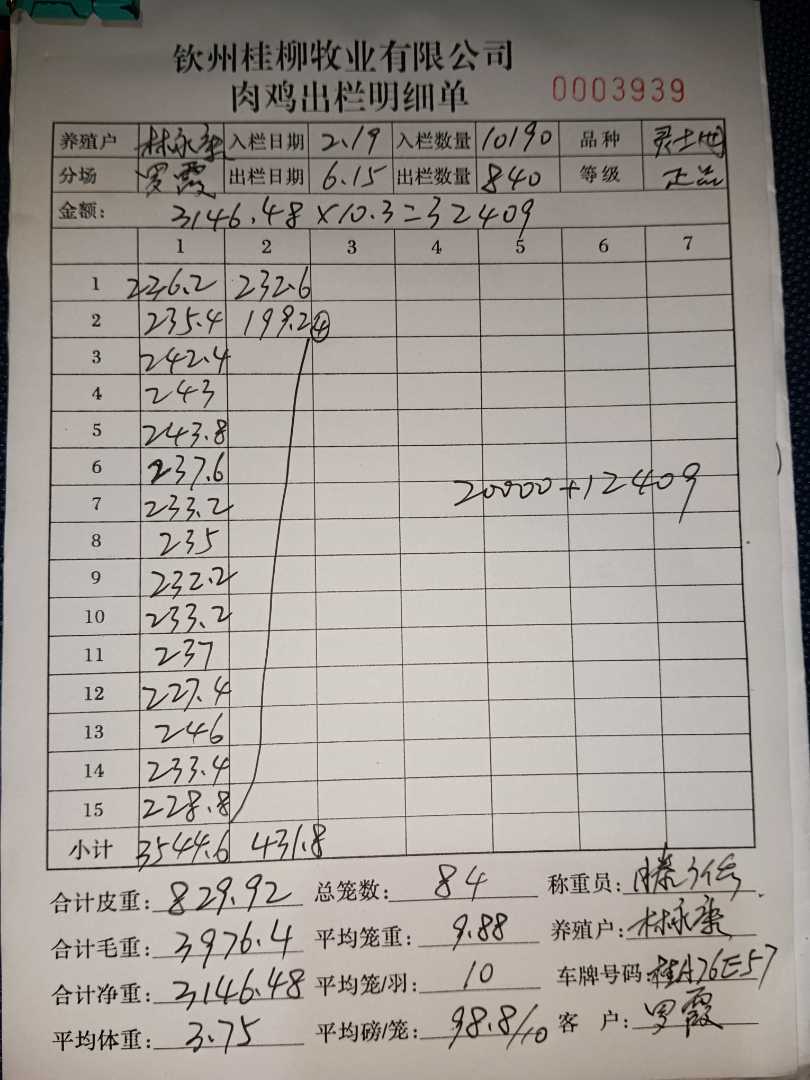 钦州桂柳牧业有限公司
肉鸡出栏明细单 0003939
养殖户 林永 入栏日期 2.19 入栏数量 10190 品种
分场 罗霞 出栏日期 6.15 出栏数量 840 等级 正品
金额: 3146.48×10.3=32409
1 2 3 4 5 6 7
1 236.2 232.6
2 235.4 199.2 ④
3 242.4
4 243
5 243.8
6 237.6
7 233.2
20000+12409
8 235
9 232.2
10 233.2
11 237
12 227.4
13 246
14 233.4
15 228.8
小计 3544.6 431.8
合计皮重: 829.92 总笼数: 84 称重员: 滕
合计毛重: 3976.4 平均笼重: 9.88 养殖户: 林永
合计净重: 3146.48 平均笼/羽: 10 车牌号码: 桂A76E57
平均体重: 3.75 平均磅/笼: 98.8/10 客 户: 罗霞